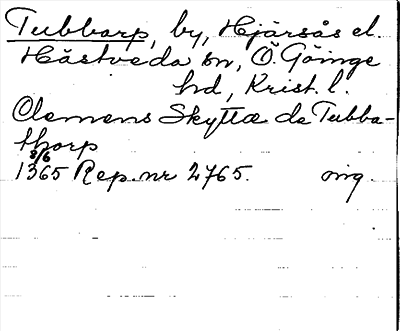 Tubbarp, by, Hjärsås el.
Hästveda sn, Ö. Göinge
hd, Krist. l.
Clemens Skyttæ de Tubba-
thorp
8/6
1365 Rep. nr 2765. orig.